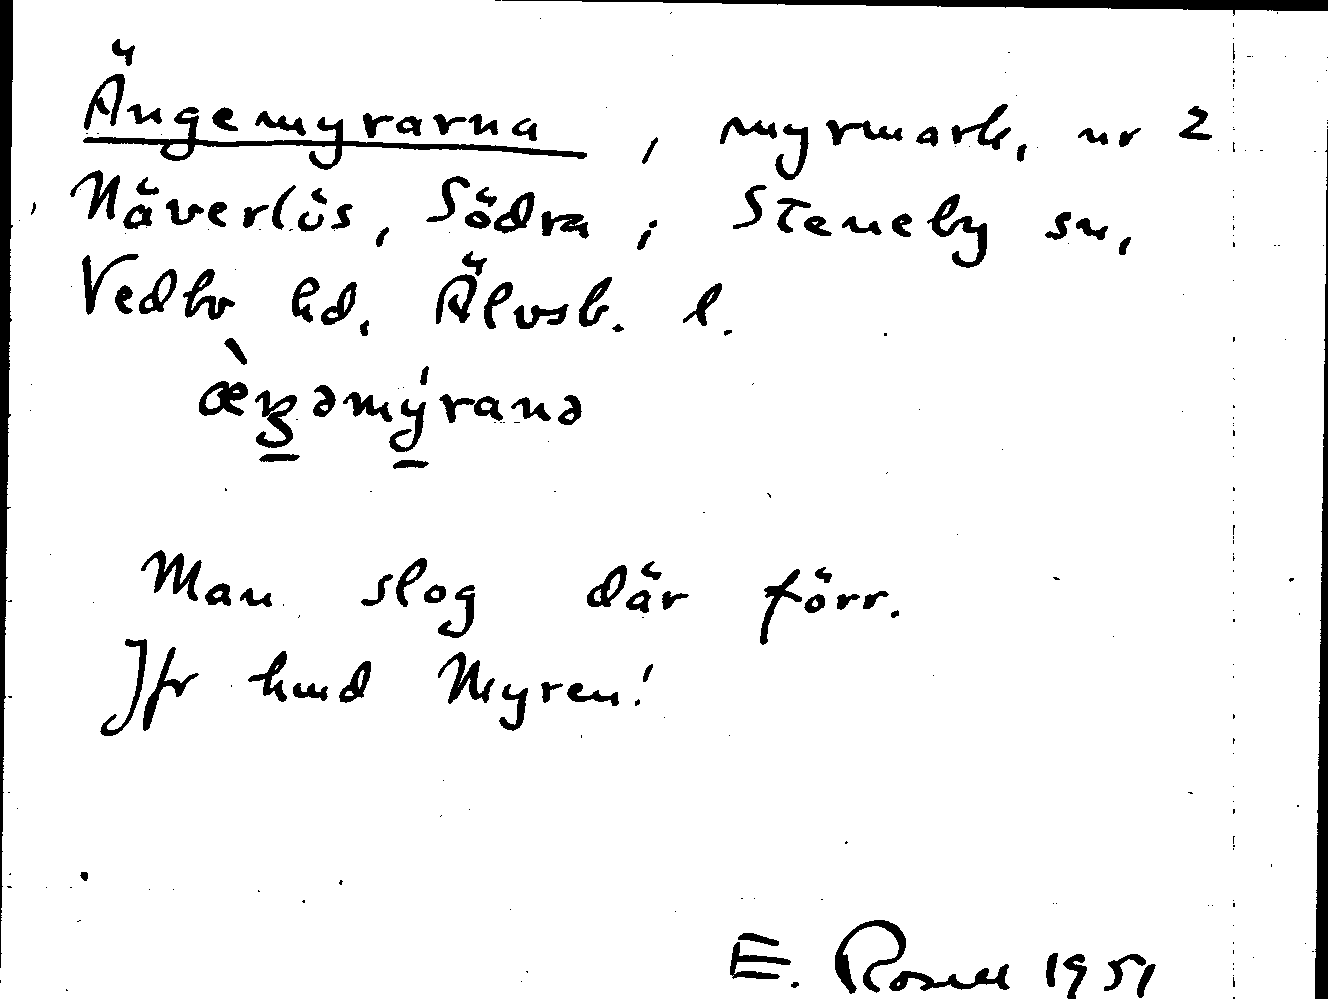 Ängemyrarna, myrmark, nr 2
Näverlös, Södra, i Steneby sn,
Vedbo hd, Älvsb. l.
æ̀ŋəmýranə
Man slog där förr.
Jfr hmd Myren!
E. Rosell 1951